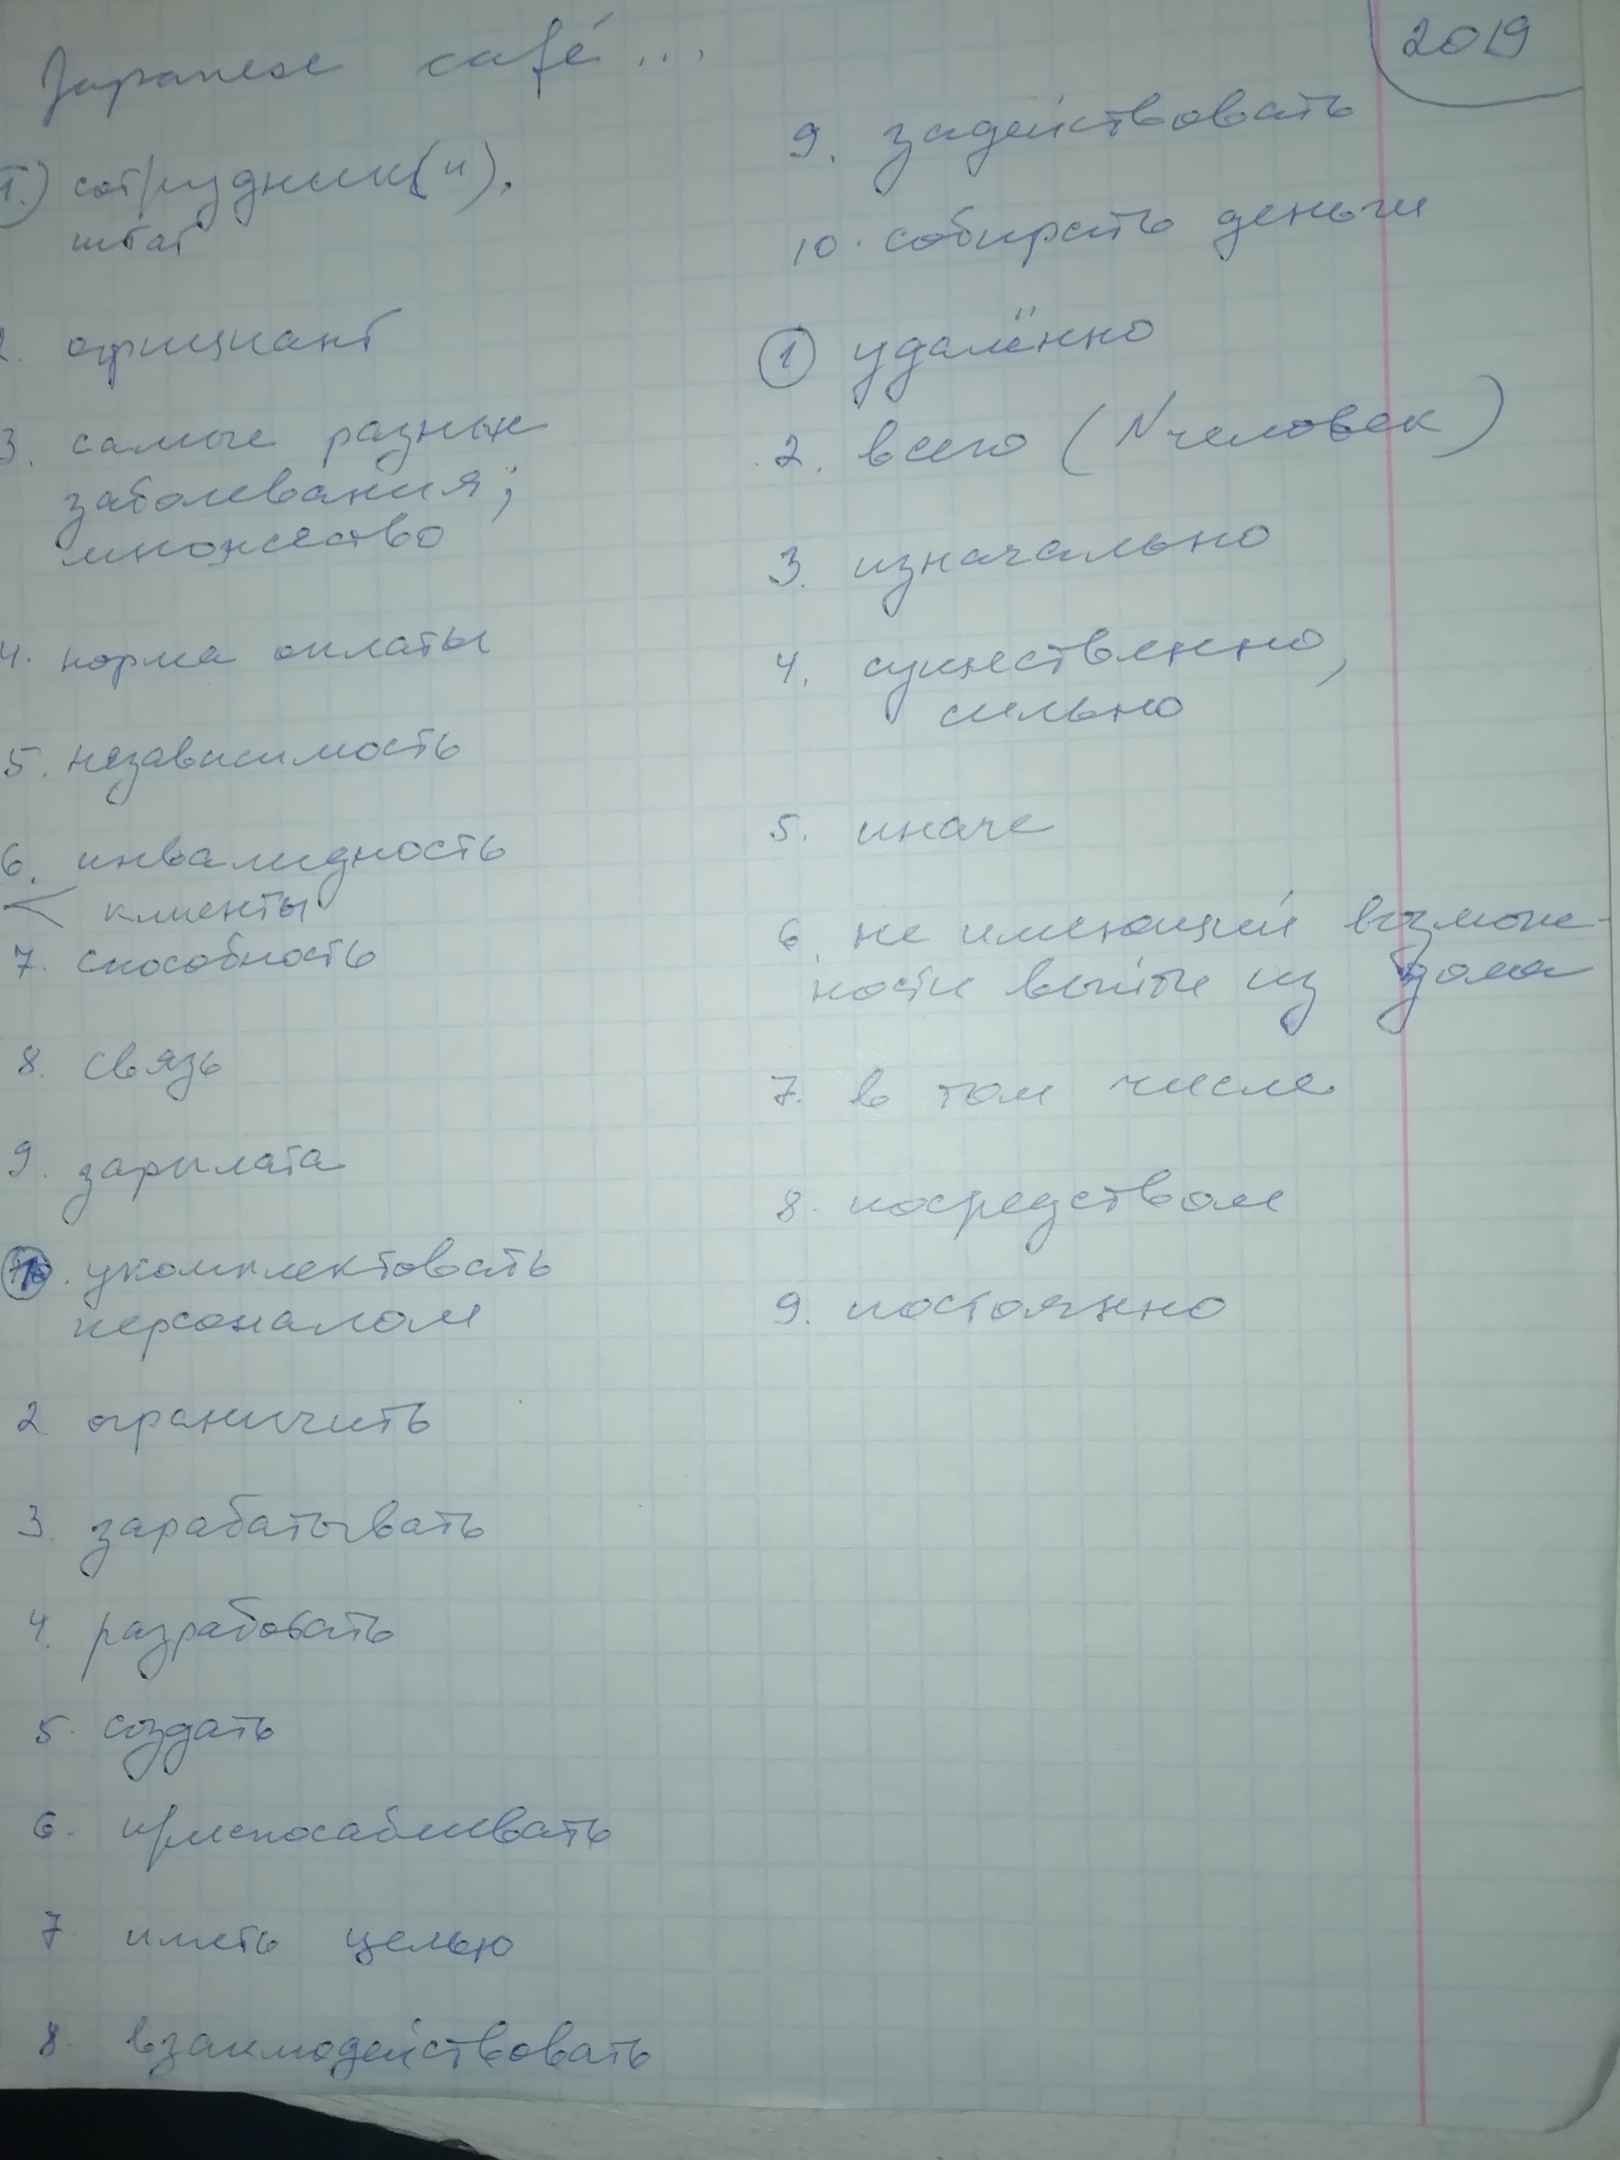 Japanese café...
2019
1.) сотрудник(и),
штат
2. официант
3. самые разные
заболевания;
множество
4. норма оплаты
5. независимость
6. инвалидность
клиенты
7. способность
8. связь
9. зарплата
1. укомплектовать
персоналом
2 ограничить
3. зарабатывать
4. разработать
5. создать
6. приспосабливать
7 иметь целью
8. взаимодействовать
9. задействовать
10. собирать деньги
1 удалённо
2. всего (N человек)
3. изначально
4. существенно,
сильно
5. иначе
6. не имеющий возмож-
ности выйти из дома
7. в том числе
8. посредством
9. постоянно